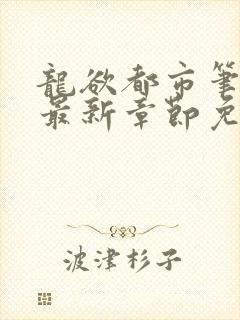 龍欲都市筆
最新章節免
波津杉子